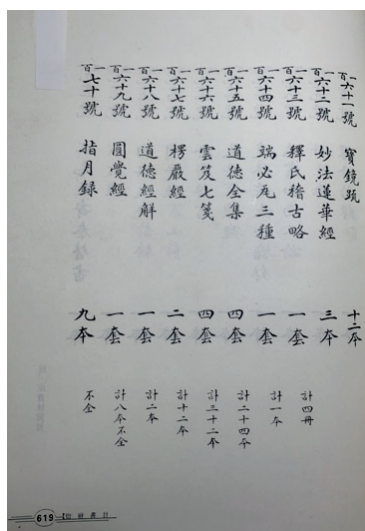 一百六十一號　寶鏡疏　十二本
一百六十二號　妙法蓮華經　三本
一百六十三號　釋氏稽古略　一套　計四冊
一百六十四號　端必瓦三種　一套　計一本
一百六十五號　道德全集　四套　計二十四本
一百六十六號　雲笈七籤　四套　計三十二本
一百六十七號　楞嚴經　二套　計十二本
一百六十八號　道德經解　一套　計二本
一百六十九號　圓覺經　一套　計八本不全
一百七十號　指月錄　九本　不全
619